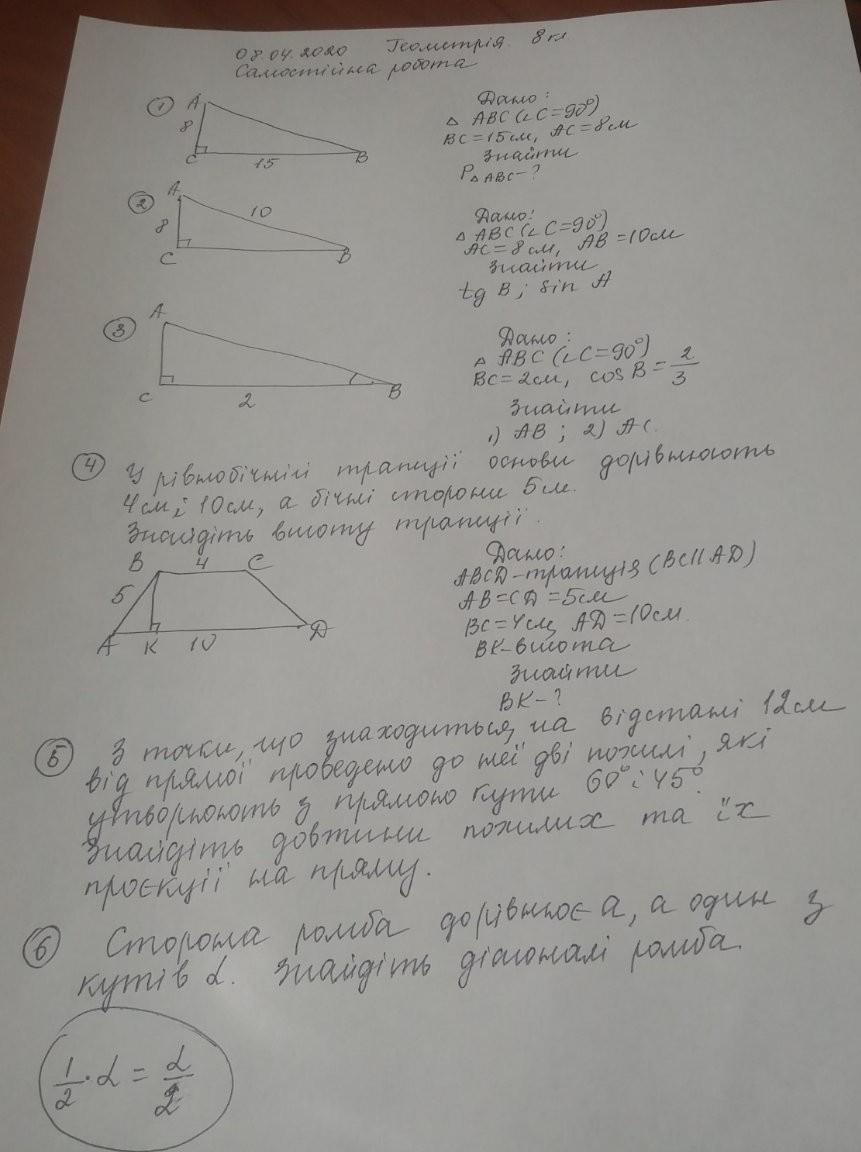 08.04.2020 Геометрія. 8 кл
Самостійна робота
1
A
8
C
15
B
Дано:
△ ABC (∠C=90°)
BC=15см, AC=8см
Знайти
P△ABC-?
2
A
10
8
C
B
Дано:
△ ABC (∠C=90°)
AC=8см, AB=10см
Знайти
tg B; sin A
3
A
C
2
B
Дано:
△ ABC (∠C=90°)
BC=2см, cos B = 2/3
Знайти
1) AB; 2) AC.
4 У рівнобічній трапції основи дорівнюють
4см і 10см, а бічні сторони 5см.
Знайдіть висоту трапції.
B 4 C
5
A K 10 D
Дано:
ABCD-трапція (BC||AD)
AB=CD=5см
BC=4см, AD=10см.
BK-висота
Знайти
BK-?
5 З точки, що знаходиться на відстані 12см
від прямої проведено до неї дві похилі, які
утворюють з прямою кути 60° і 45°.
Знайдіть довжини похилих та їх
проєкції на пряму.
6 Сторона ромба дорівнює a, а один з
кутів α. Знайдіть діагоналі ромба.
1/2 · α = α/2